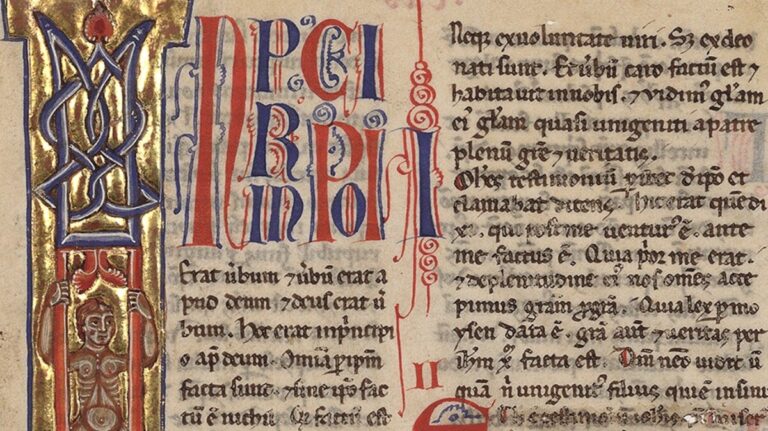 N P C I
R P I
IN P O
Erat ũbum ⁊ ũbũ erat a
pud deum ⁊ deus erat ũ
bum. Hoc erat inp̃ncipi
o ap̃ deum. Om̃ia ꝑ ip̃m
facta sunt. ⁊ sine ip̃o fac
tũ ẽ nichil. Qđ factũ est
Neqꝫ exuoluntate uiri. Sꝫ exdeo
nati sunt. Et ũbũ caro factũ est ⁊
habitauit innobis. ⁊ uidimꝰ gl̃am
eiꝰ gl̃am quasi unigeniti apatre
plenum gr̃e ⁊ ueritatis.
I
Ioh̃es testimonium d̃ ip̃o et
clamabat dicens. hic erat quem di
xi. qui post me uenturꝰ ẽ. ante
me factus ẽ. Quia p̃or me erat.
⁊ deplenitudine eiꝰ nos om̃es acce
pimus gr̃am ꝓ gr̃a. Quia lex ꝑ mo
ysen data ẽ. gr̃a aut̃ ⁊ ueritas per
ih̃m xp̃m facta est. Dm̃ nemo uidit ũ
quã ñ unigenitꝰ filius qui ẽ insinu
II